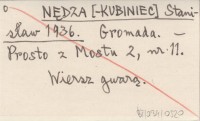 NĘDZA [-KUBINIEC] Stani-
sław 1936. Gromada. —
Prosto z Mostu 2, nr. 11.
Wiersz gwarą.